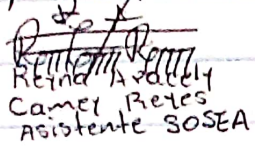 Reyna Aracely
Camey Reyes
Asistente SOSEA